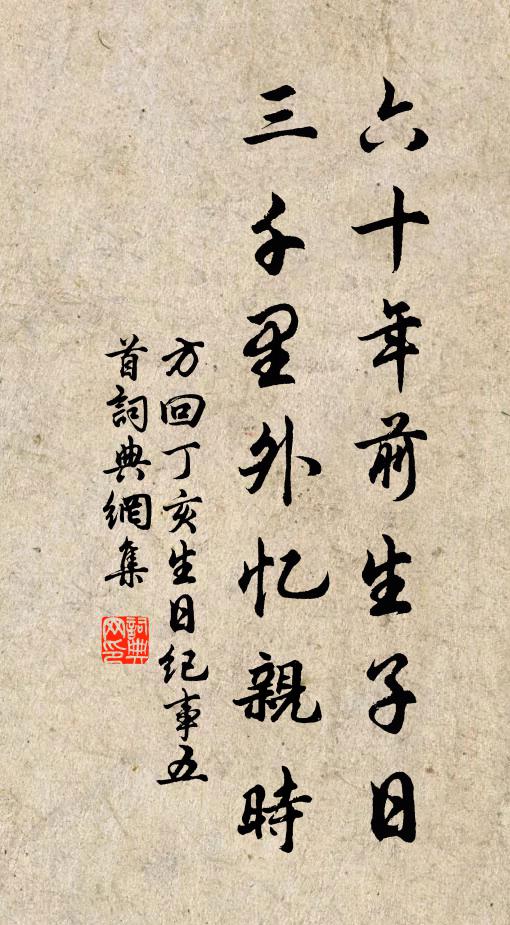 六十年前生子日
三千里外忆親時
方回丁亥生日纪事五
首詞典網集
詞典
网印